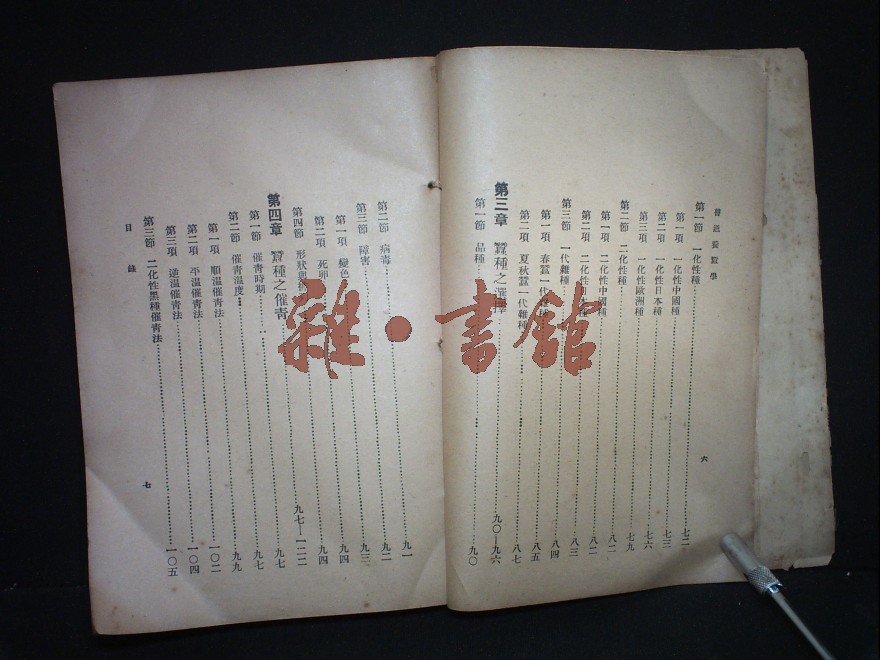 普通養蠶學
第一節 一化性種……七二
第一項 一化性中國種……七二
第二項 一化性日本種……七三
第三項 一化性歐洲種……七六
第二節 二化性種……七九
第一項 二化性中國種……八二
第二項 二化性日本種……八二
第三節 一代雜種……八三
第一項 春蠶一代雜種……八四
第二項 夏秋蠶一代雜種……八五
第三章 蠶種之選擇……九〇—九六
第一節 品種……九〇
六
第二節 病毒……九一
第三節 障害……九二
第一項 變色……九三
第二項 死卵……九四
第四節 形狀
第四章 蠶種之催青……九七—一二二
第一節 催青時期……九七
第二節 催青溫度……九九
第一項 順溫催青法……一〇二
第二項 平溫催青法……一〇四
第三項 逆溫催青法……一〇五
第三節 二化性黑種催青法
目錄
七
雜·書館